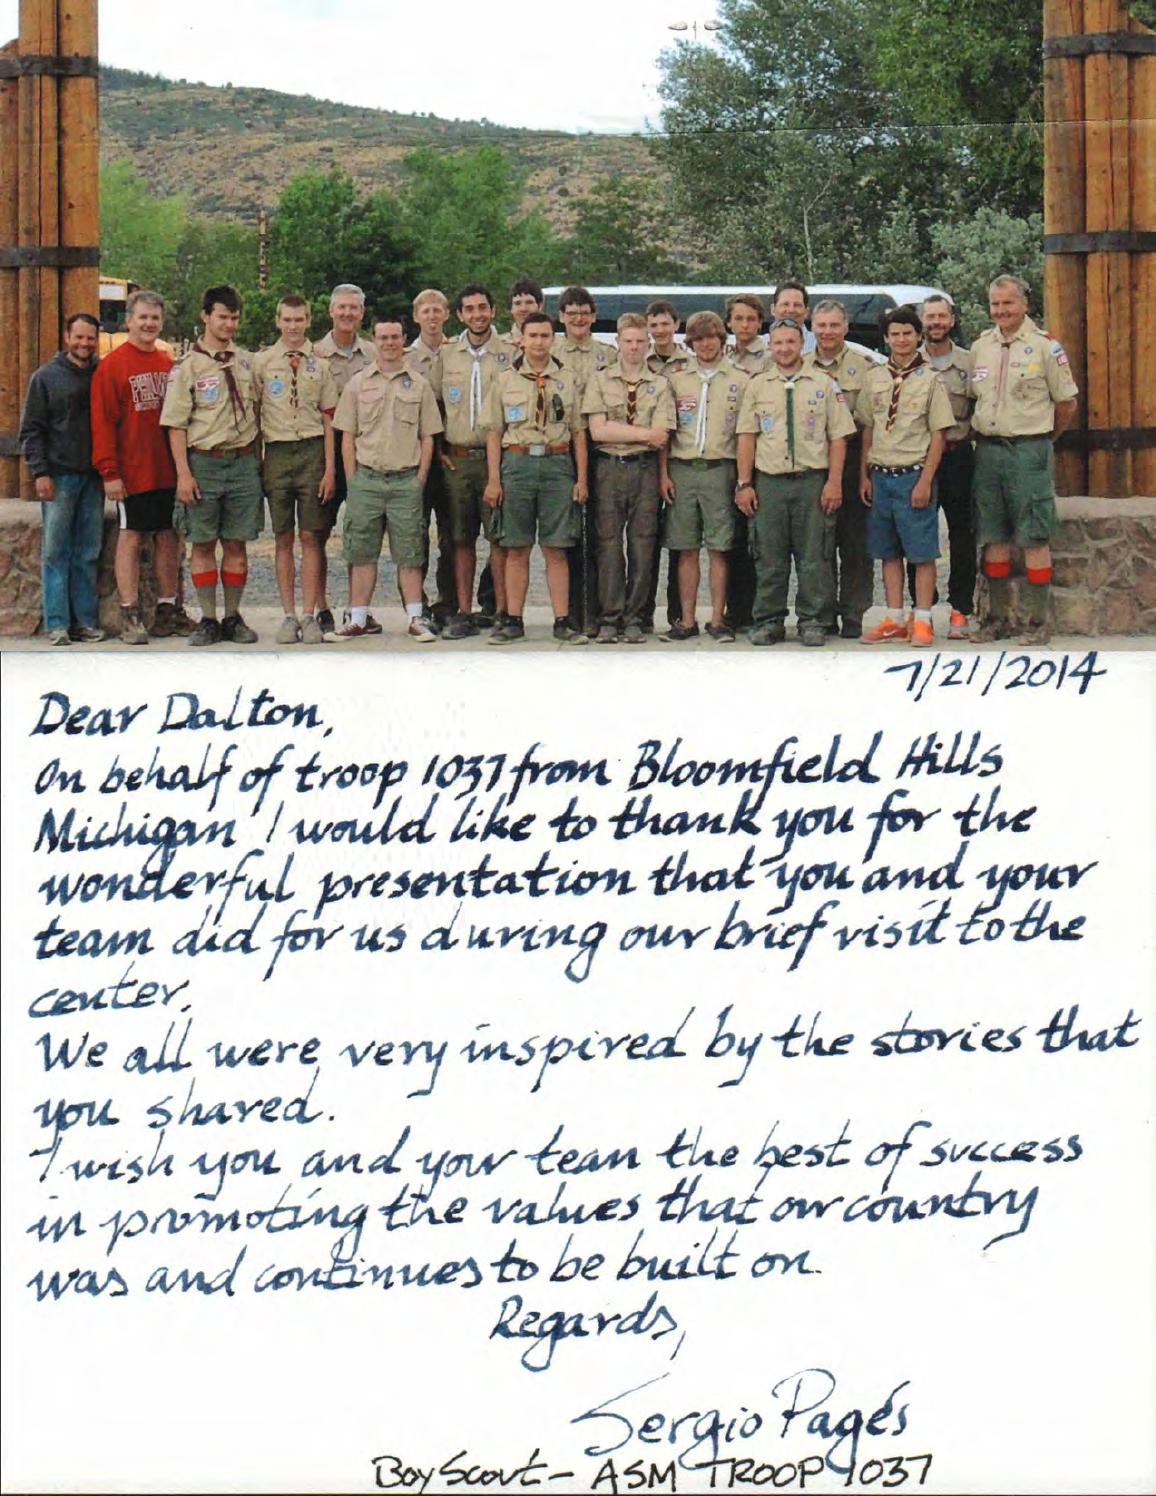 7/21/2014
Dear Dalton,
On behalf of troop 1037 from Bloomfield Hills
Michigan I would like to thank you for the
wonderful presentation that you and your
team did for us during our brief visit to the
center.
We all were very inspired by the stories that
you shared.
I wish you and your team the best of success
in promoting the values that our country
was and continues to be built on.
Regards,
Sergio Pagés
Boy Scout - ASM TROOP 1037